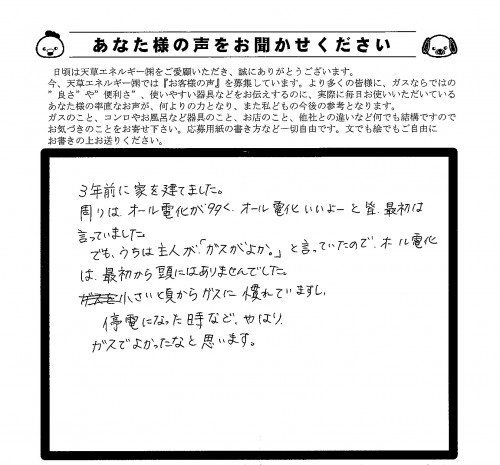 あなた様の声をお聞かせください
日頃は天草エネルギー㈱をご愛顧いただき、誠にありがとうございます。
今、天草エネルギー㈱では『お客様の声』を募集しています。より多くの皆様に、ガスならではの
”良さ”や”便利さ”、使いやすい器具などをお伝えするのに、実際に毎日お使いいただいている
あなた様の率直なお声が、何よりの力となり、また私どもの今後の参考となります。
ガスのこと、コンロやお風呂など器具のこと、お店のこと、他社との違いなど何でも結構ですので
お気づきのことをお寄せ下さい。応募用紙の書き方など一切自由です。文でも絵でもご自由に
お書きの上お送りください。
3年前に家を建てました。
周りは、オール電化が多く、オール電化いいよーと皆、最初は
言っていました。
でも、うちは主人が、「ガスがよか。」と言っていたので、オール電化
は、最初から頭にはありませんでした。
小さい頃からガスに慣れていますし、
停電になった時など、やはり、
ガスでよかったなと思います。